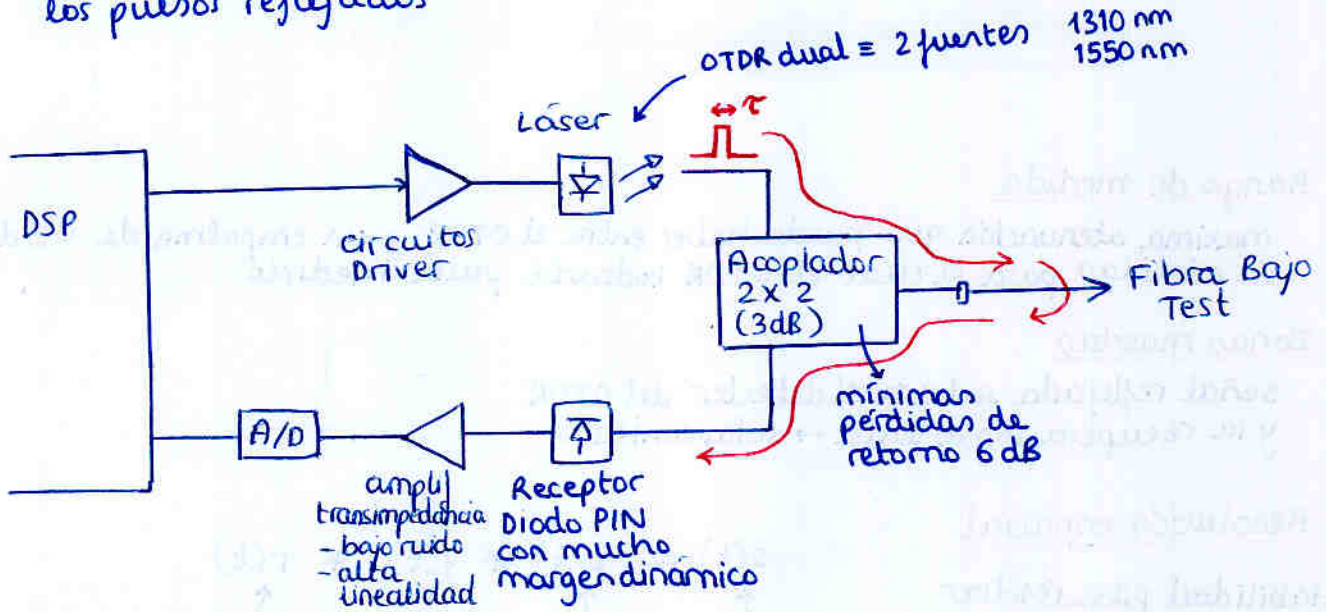 los pulsos reflejados
OTDR dual ≡ 2 fuentes 1310 nm
1550 nm
Láser
τ
DSP
circuitos
Driver
Acoplador
2x2
(3dB)
Fibra Bajo
Test
mínimas
pérdidas de
retorno 6 dB
A/D
ampli
transimpedancia
- bajo ruido
- alta
linealidad
Receptor
Diodo PIN
con mucho
margen dinámico